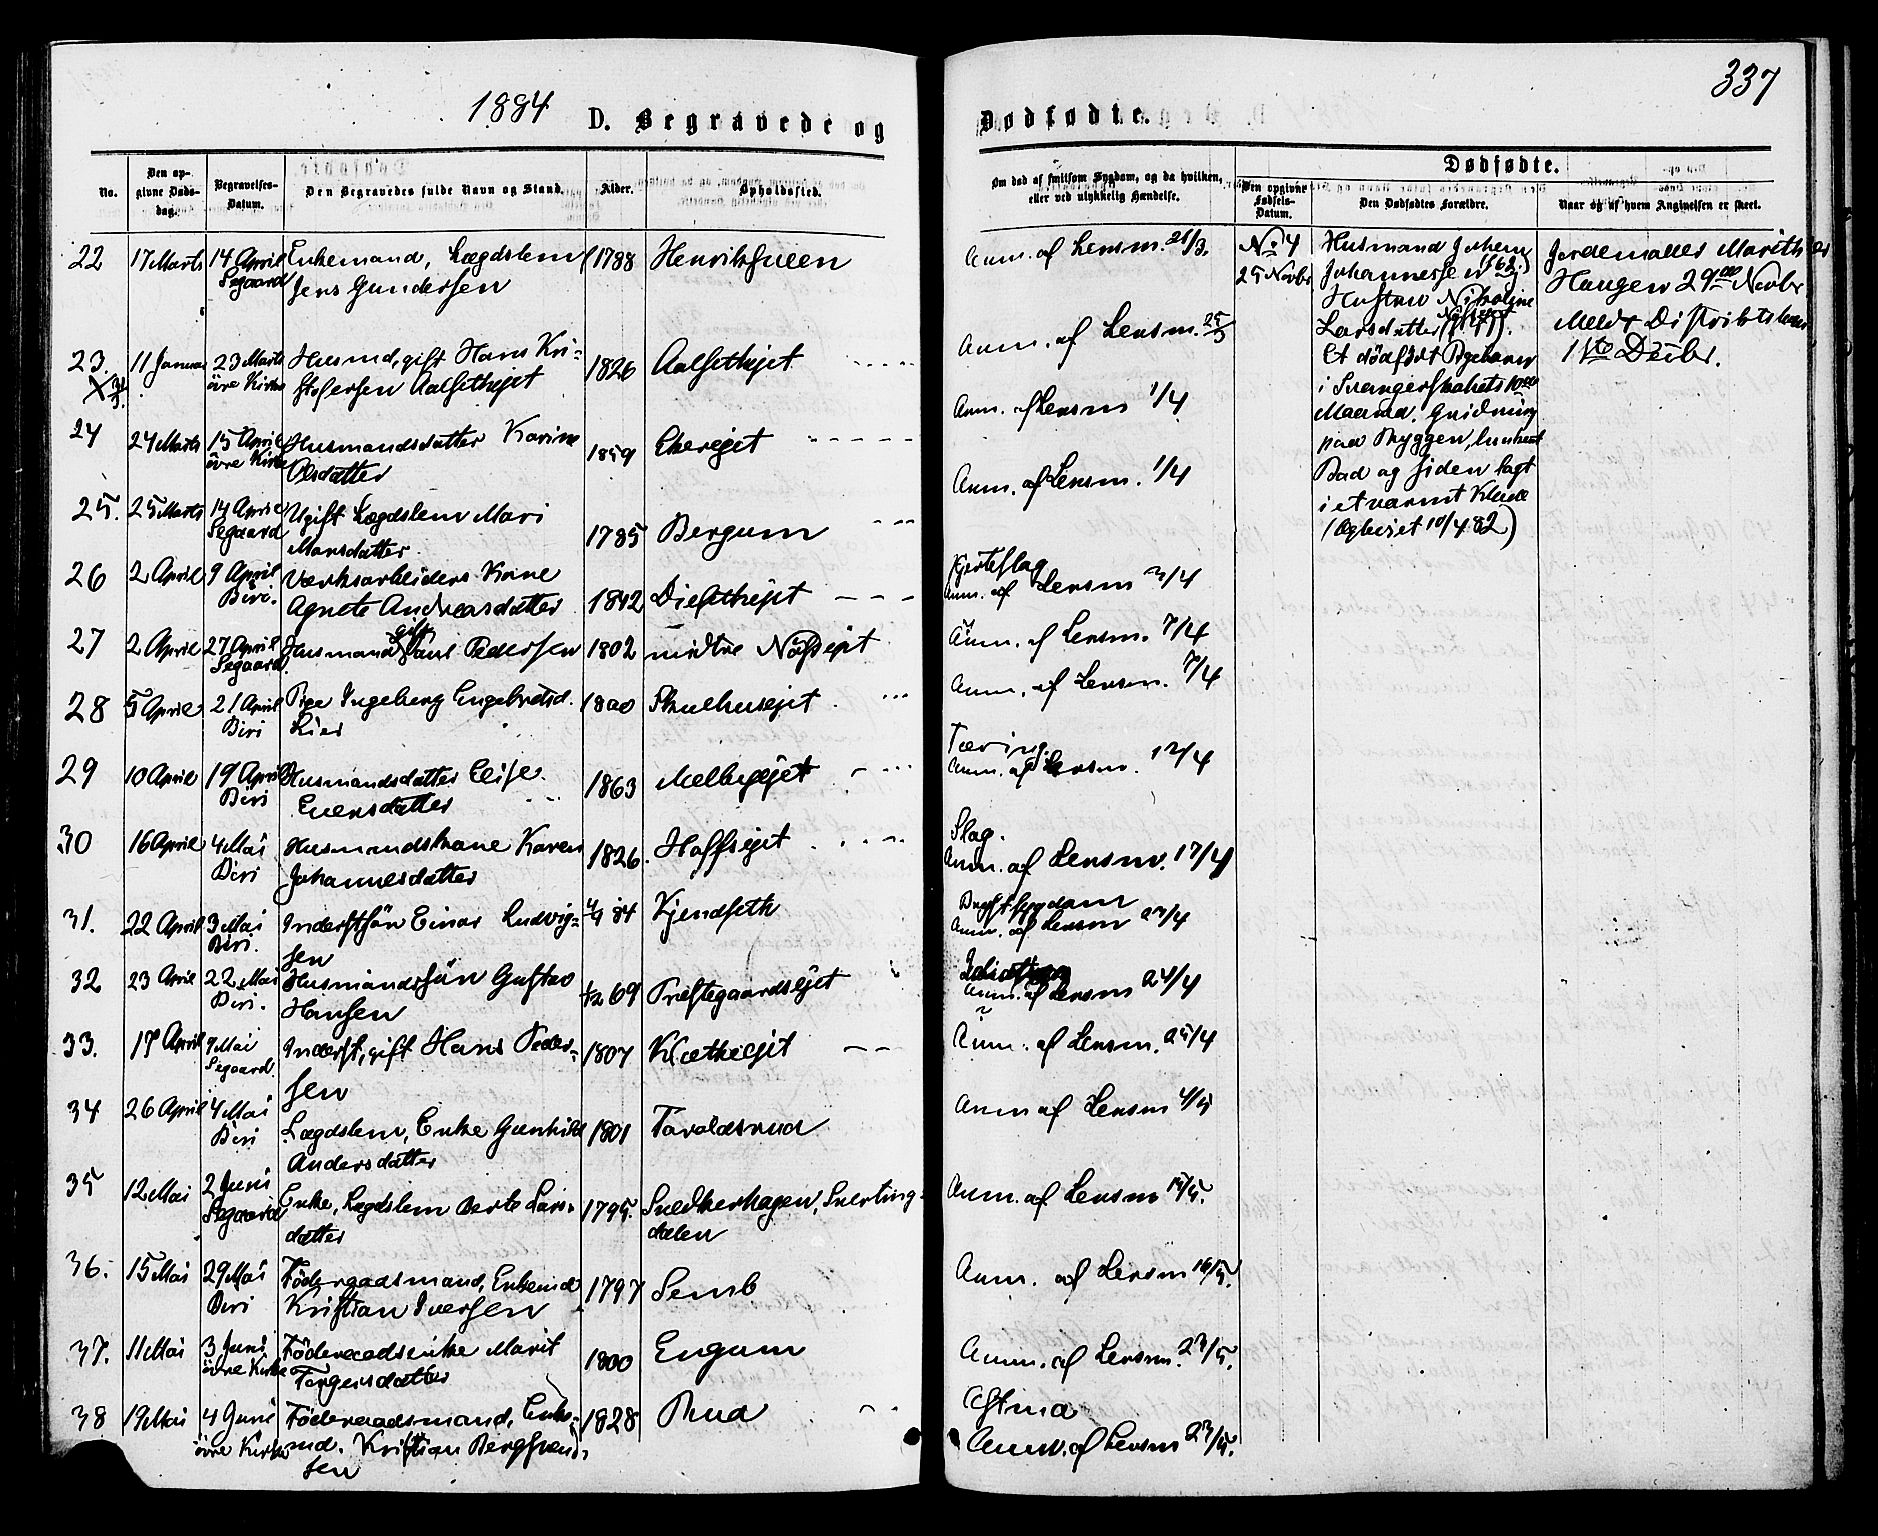 1884
D. Begravede og
No.
Den op-
givne Døds-
dag.
Begravelses-
Datum.
Den Begravedes fulde Navn og Stand.
Alder.
Opholdssted.
22 17 Marts 14 April Enkemand, Lægdslem 1788 Henrikshveen
Segaard Jens Gundersen
23. 11 Januar 23 Marts Husmd, gift Hans Kri- 1826 Aalsethejet
øvre Kirke stofersen Aalsethejet
24 24 Marts 15 April Husmandsdatter Karine 1859 Ekerejet
øvre Kirke Olsdatter
25. 25 Marts 14 April Ugift Lægdslem Mari 1785 Bergum
Segaard Mansdatter
26 2 April 9 April Værksarbeiders Kone 1842
Biri. Agnete Andreasdatter
27 2 April 27 April Husmand gift Paul Pedersen 1802 midtre Næsejet
Segaard
28 5 April 21 April Pige Ingeborg Engebretsd. 1800 Skulhusejet
Biri Lier
29 10 April 19 April Husmandsdatter Elise 1863 Melbyejet
Biri Evensdatter
30 16 April 4 Mai Husmandskone Karen 1826. Hoffsejet
Biri Johannesdatter
31. 22 April 3 Mai Inderstsøn Einar Ludvig- 84 Kjendseth
Biri. sen
32 23 April 22 Mai Husmandssøn Gustav 69 Præstegaardsejet
Biri. Hansen
33. 17 April 9 Mai Inderst, gift Hans Peder- 1807 Klætteejet
Segaard sen
34 26 April 4 Mai Lægdslem, Enke Gunhild 1801 Taraldsrud
Biri Andersdatter
35 12 Mai 2 Juni Enke, Lægdslem Berte Lars- 1795. Snedkerhagen, Snerting-
Segaard datter dalen
36. 15 Mai 29 Mai Föderaadsmand, Enkemd 1797 Semb
Biri Kristian Iversen
37. 11 Mai 3 Juni Föderaadsenke Marit 1800 Engum
øvre Kirke Torgersdatter
38 19 Mai 4 Juni Föderaadsmand, Enke- 1828 Rud
øvre Kirke md. Kristian Bergsvend-
sen
337
Dødfødte.
Om død af smitsom Sygdom, og da hvilken,
eller ved ulykkelig Hændelse.
Dødfødte.
Den opgivne
Fødsels-
Datum.
Den Dødfødtes Forældre.
Naar og af hvem Angivelsen er skeet.
Anm. af Lensm. 21/3.
Anm. af Lensm. 25/3
Anm. af Lensm 1/4
Anm. af Lensm. 1/4
Hjerteslag
Anm. af Lensm 3/4
Anm. af Lensm. 7/4
Anm. af Lensm. 7/4
Tæring.
Anm. af Lensm. 12/4
Slag.
Anm. af Lensm. 17/4
Brystsygdom
Anm. af Lensm 23/4
Anm. af Lensm 24/4
Anm. af Lensm. 25/4
Anm af Lensm 4/5
Anm. af Lensm 15/5.
Anm. af Lensm 16/5.
Anm. af Lensm. 23/5.
Astma
Anm. af Lensm 23/5.
No 4
25 Novbr
Husmand Johan
Johannessen
Hustru Nikoline
Larsdatter
Et dødfødt Pigebarn
i Svangerskabets 10de
Maaned. Gnidning
paa Ryggen, lunkent
Bad og siden lagt
i et varmt Klæde
(Ægteviet 10/4 82)
Jordemoder Marith
Haugen 29de Novbr
Meldt Distriktslæ
1ste Decbr.